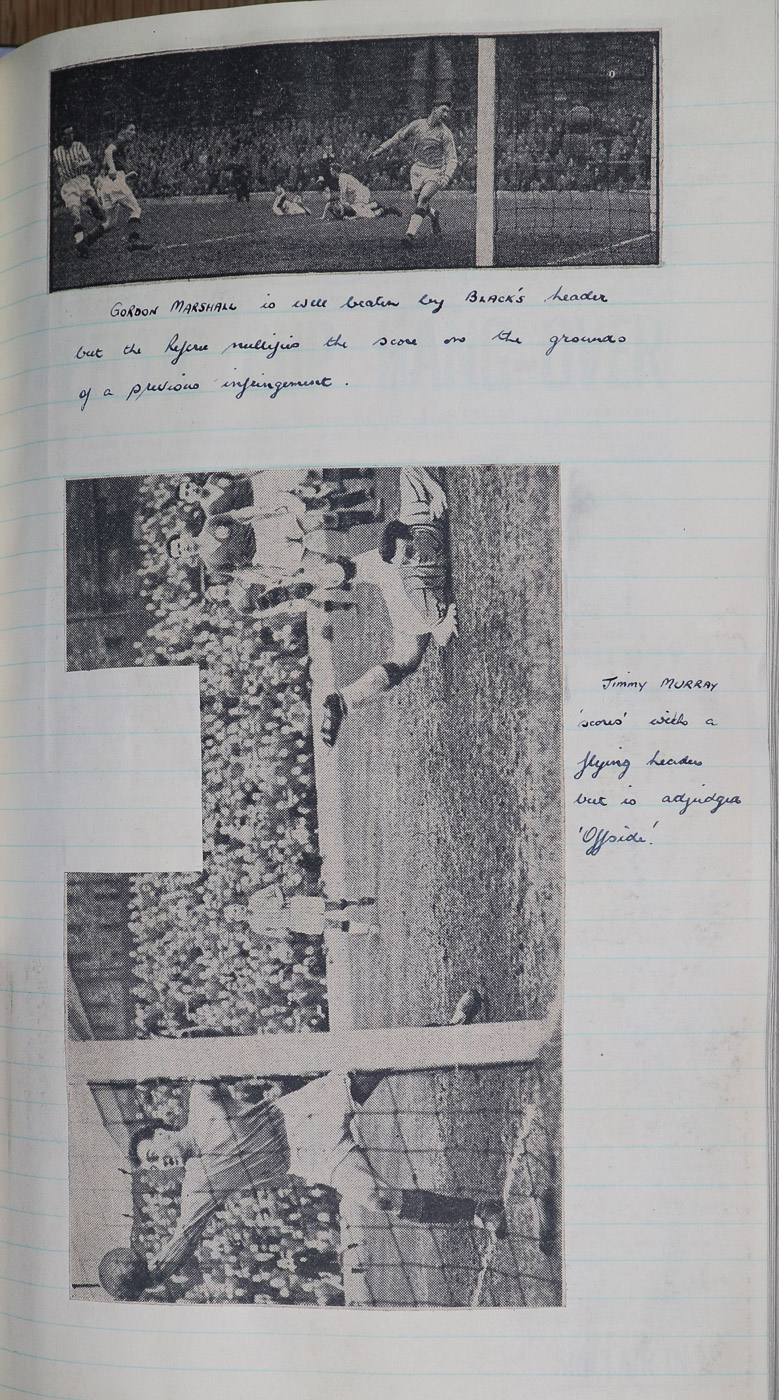 GORDON MARSHALL is well beaten by BLACK'S header
but the Referee nullifies the score on the grounds
of a previous infringement.
Jimmy MURRAY
'scores' with a
flying header
but is adjudged
'Offside'.